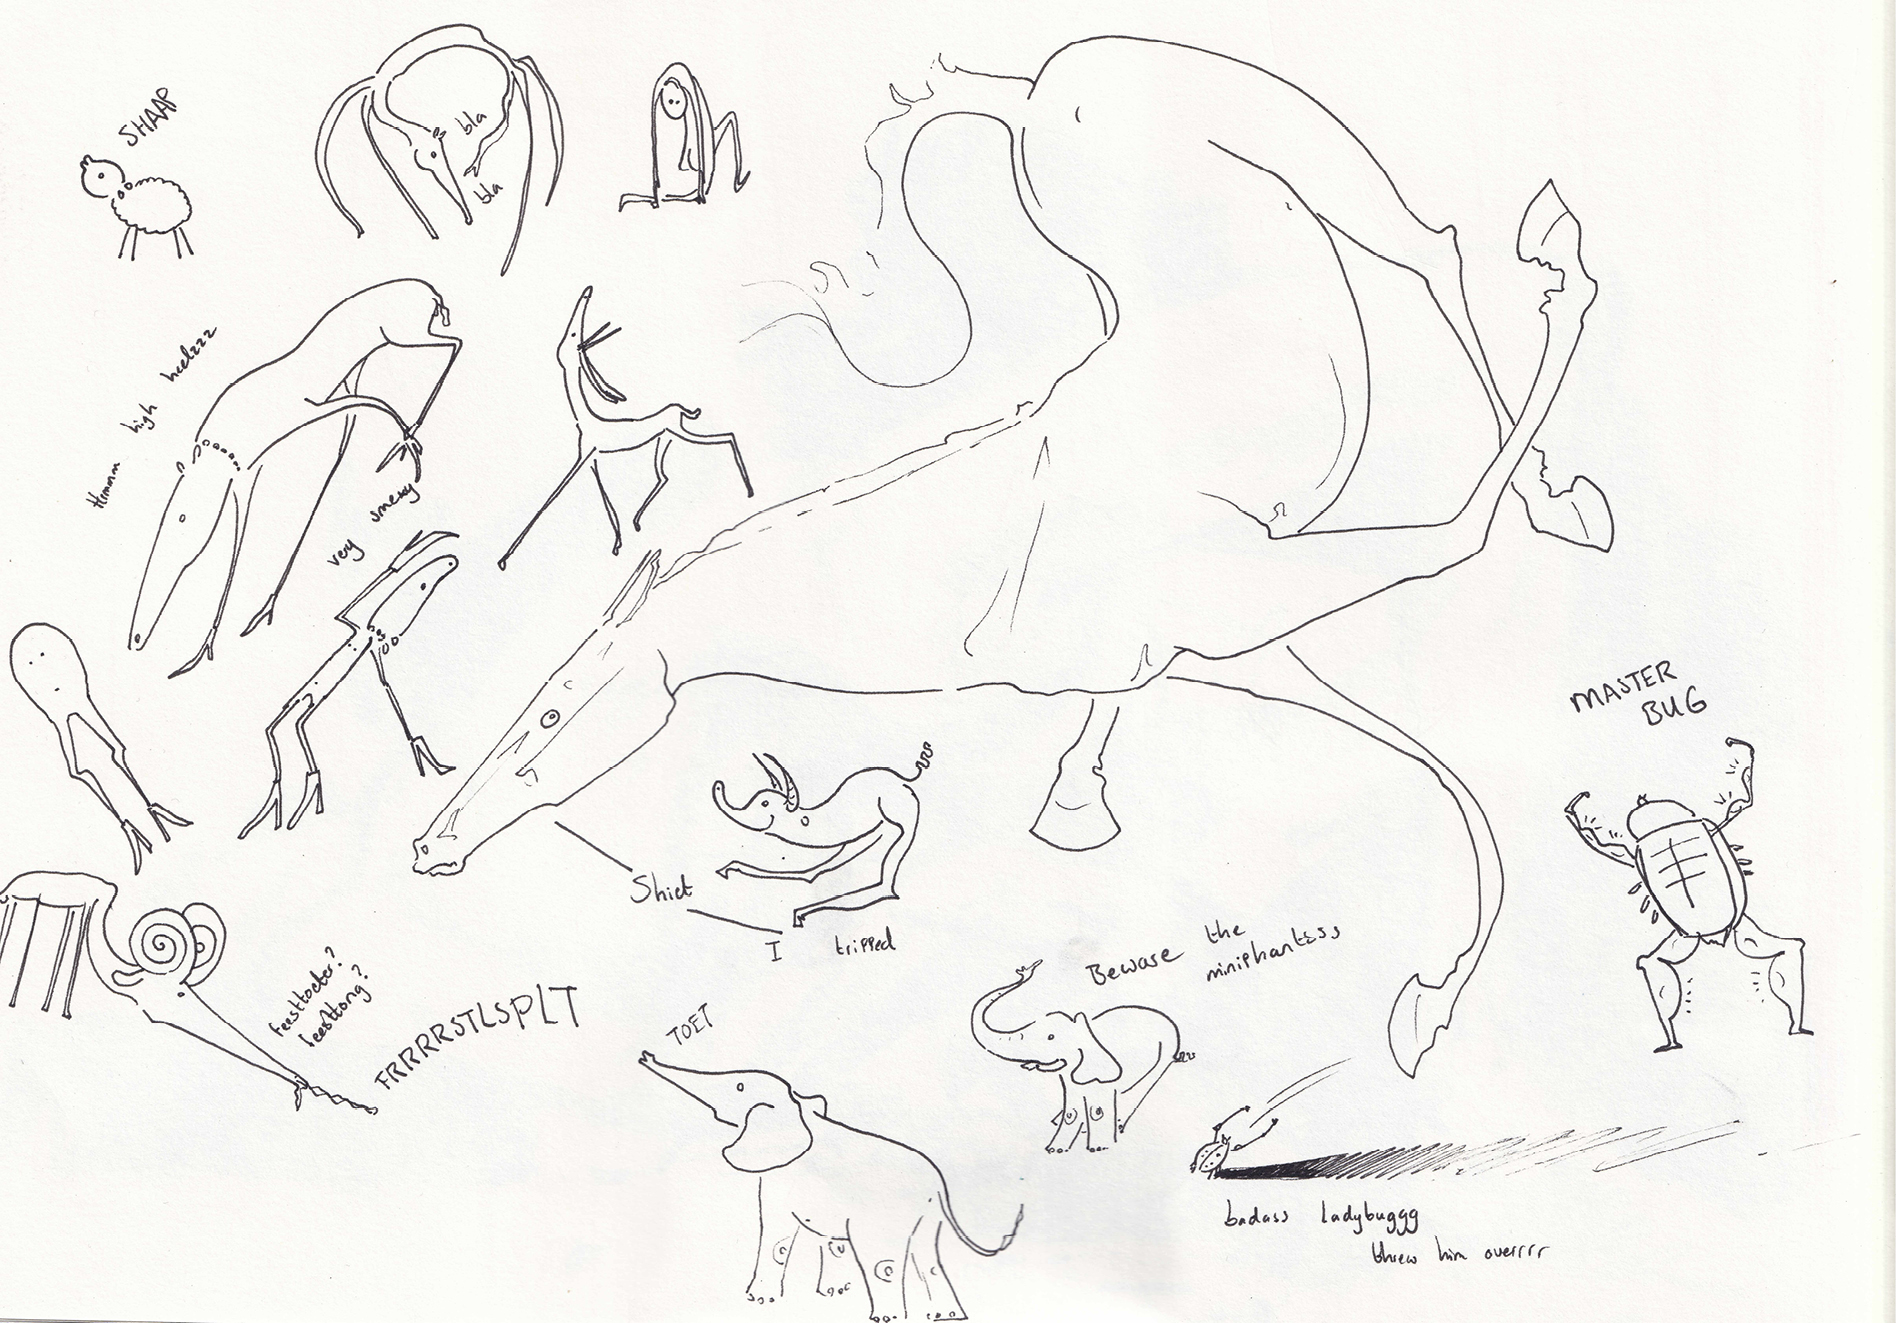 SHAAP
bla
bla
Hmmm high heelzzz
very smexy
MASTER
BUG
Shiet
I tripped
Beware the
miniphantsss
feesttoeter?
feesttong?
FRRRRSTLSPLT
TOET
badass ladybuggg
threw him overrrr